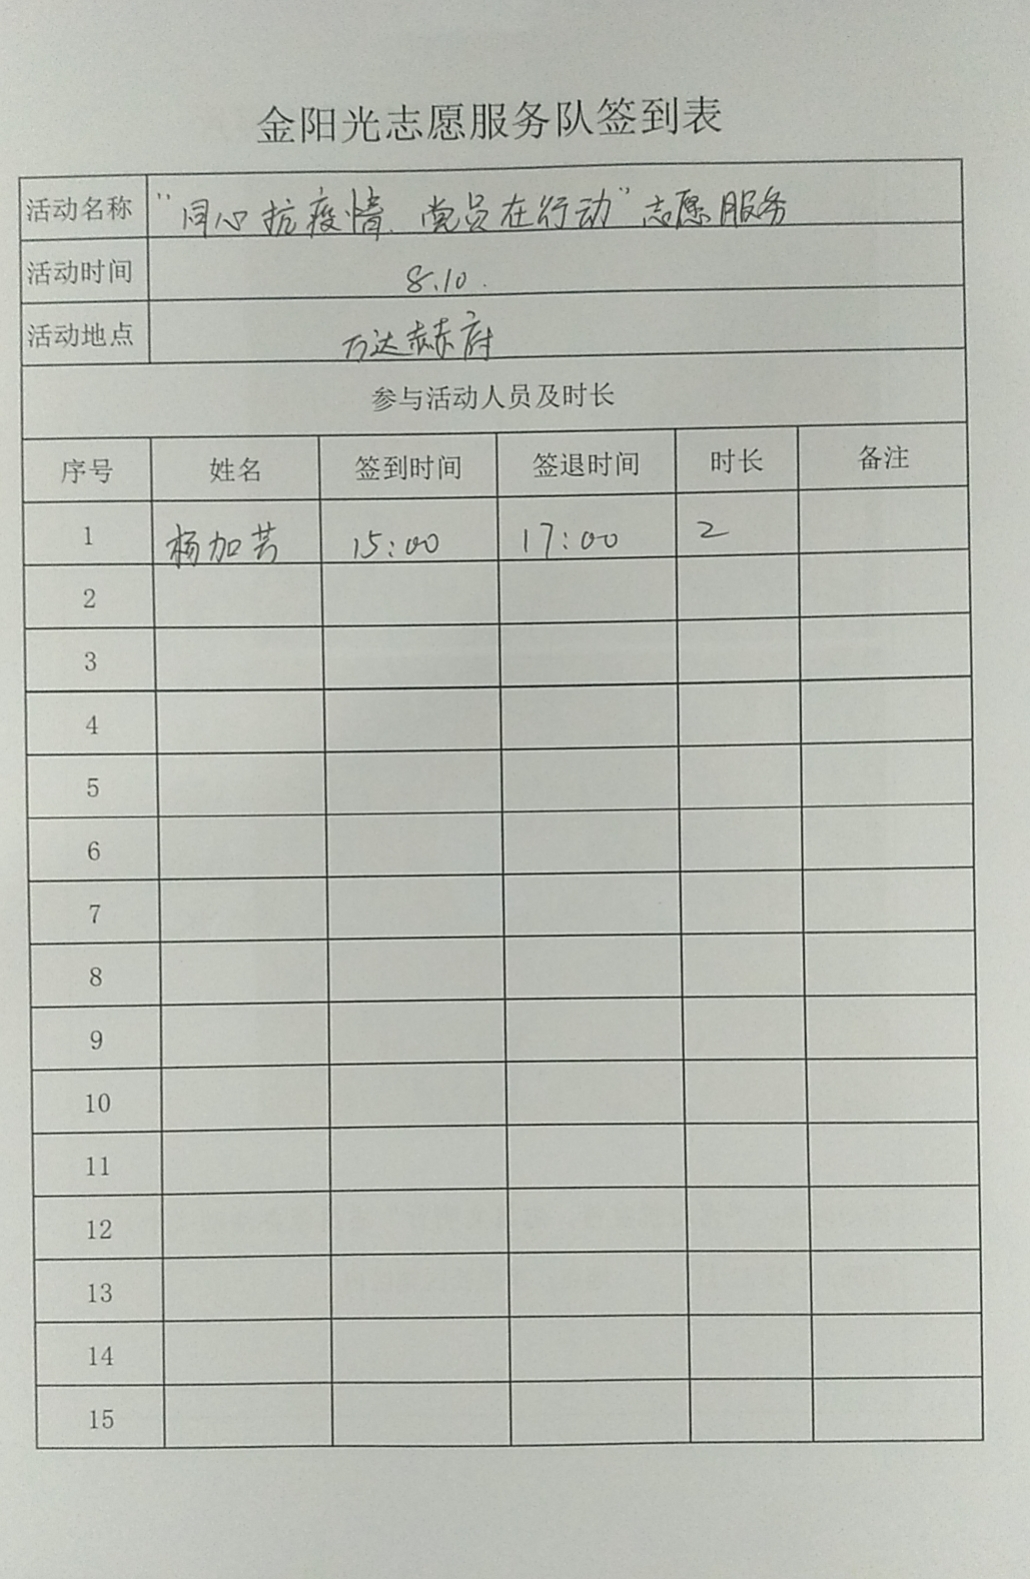 金阳光志愿服务队签到表
活动名称 "同心抗疫情、党员在行动"志愿服务
活动时间 8.10.
活动地点 万达赫府
参与活动人员及时长
序号 姓名 签到时间 签退时间 时长 备注
1 杨加芸 15:00 17:00 2
2
3
4
5
6
7
8
9
10
11
12
13
14
15